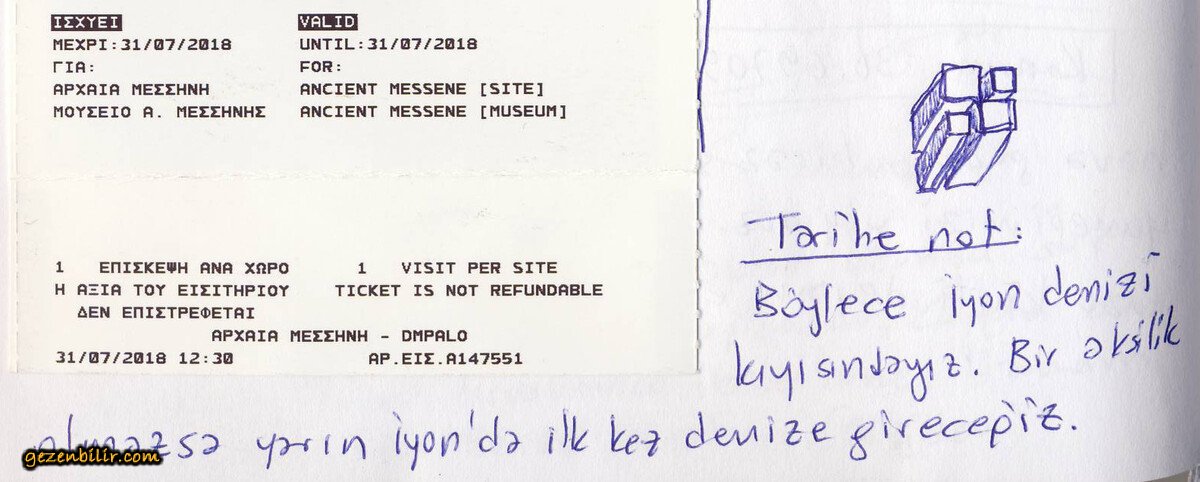 ΙΣΧΥΕΙ VALID
ΜΕΧΡΙ:31/07/2018 UNTIL:31/07/2018
ΓΙΑ: FOR:
ΑΡΧΑΙΑ ΜΕΣΣΗΝΗ ANCIENT MESSENE [SITE]
ΜΟΥΣΕΙΟ Α. ΜΕΣΣΗΝΗΣ ANCIENT MESSENE [MUSEUM]
1 ΕΠΙΣΚΕΨΗ ΑΝΑ ΧΩΡΟ 1 VISIT PER SITE
Η ΑΞΙΑ ΤΟΥ ΕΙΣΙΤΗΡΙΟΥ TICKET IS NOT REFUNDABLE
ΔΕΝ ΕΠΙΣΤΡΕΦΕΤΑΙ
ΑΡΧΑΙΑ ΜΕΣΣΗΝΗ - DMPALO
31/07/2018 12:30 ΑΡ.ΕΙΣ.Α147551
Tarihe not:
Böylece iyon denizi
kıyısındayız. Bir aksilik
olmazsa yarın iyon'da ilk kez denize gireceğiz.
gezenbilir.com